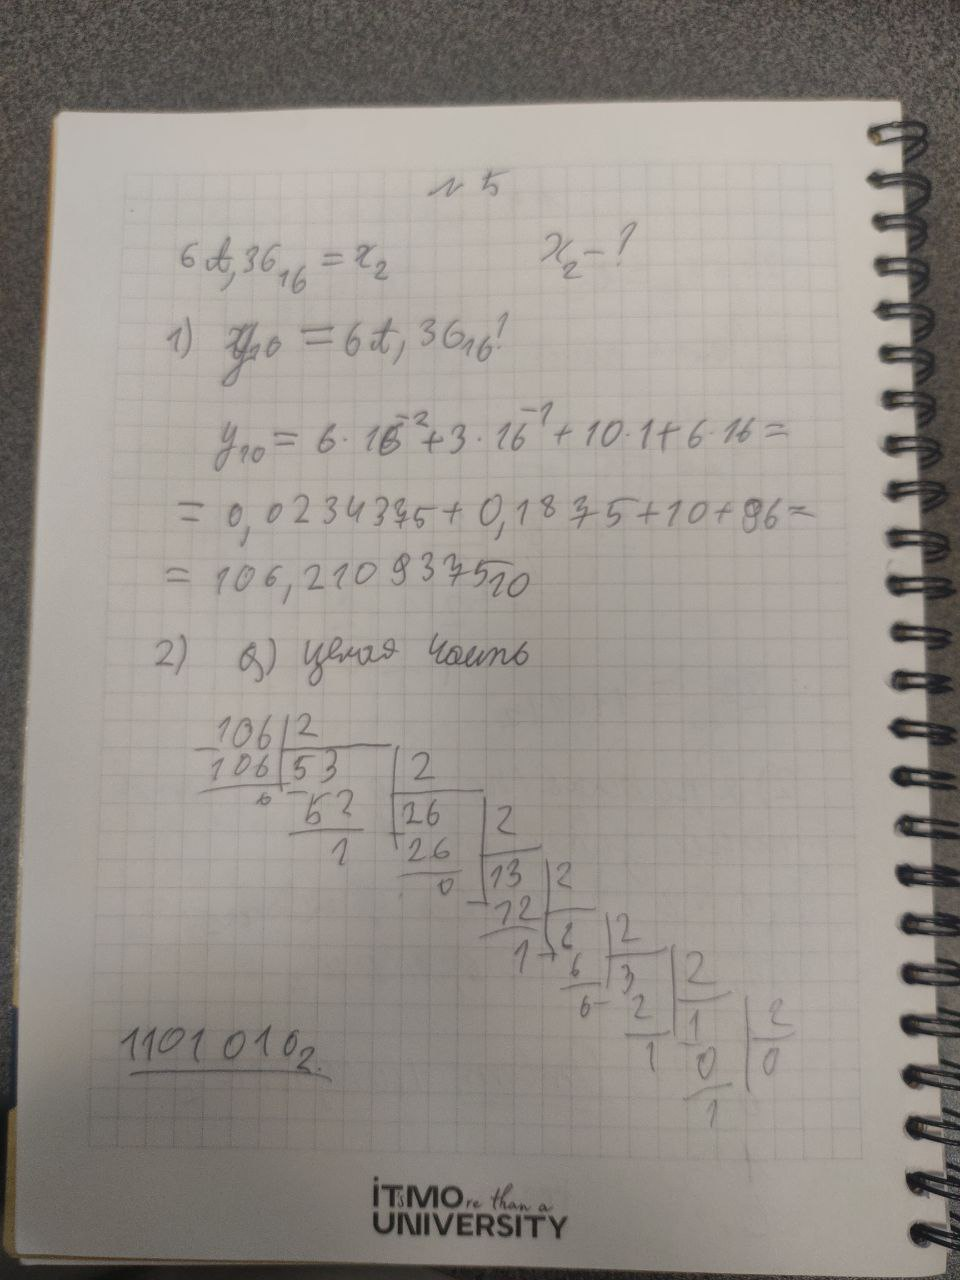 № 5
6A,36₁₆ = x₂ x₂ - ?
1) y₁₀ = 6A,36₁₆!
y₁₀ = 6·16⁻² + 3·16⁻¹ + 10·1 + 6·16 =
= 0,0234375 + 0,1875 + 10 + 96 =
= 106,2109375₁₀
2) а) целая часть
106 2
106 53 2
0 52 26 2
1 26 13 2
0 12 6 2
1 6 3 2
0 2 1 2
1 0 0
1
1101010₂.
iT'sMOre than a
UNIVERSITY